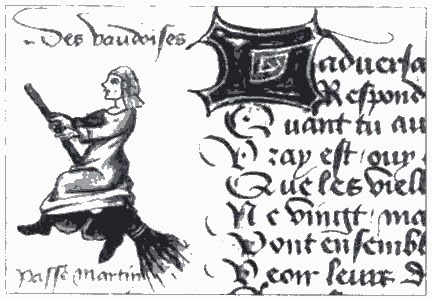 Des vaudoises
Ladversa
Respond
Quant tu au
Vray est / ouy
Que les viell
Ne vingt / ma
Vont ensembl
Veoir leur d
passe martin